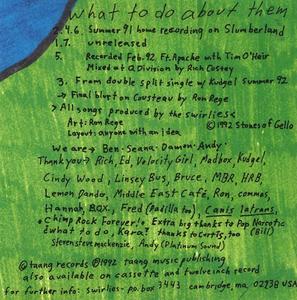 what to do about them
2.4.6. Summer 91 home recording on Slumberland
1.7. unreleased
5. Recorded Feb. 92 Ft. Apache with Tim O'Heir
Mixed at Q Division by Rich Costey
3. From double split single w/ Kudgel Summer 92
→ Final blurt on Cousteau by Ron Rege
> All songs produced by the swirlies <
Art: Ron Rege ©1992 Stones of Gello
Layout: anyone with an idea
We are → Ben · Seana · Damon · Andy ·
Thank you → Rich, Ed, Velocity Girl, Madbox, Kudgel,
Cindy Wood, Linsey Bus, Bruce, MBR, HRB,
Lemon Dando, Middle East Café, Ron, commas,
Hannah BOX, Fred (Padilla too), Canis latrans,
Chimp Rock Forever! > Extra big thanks to Pop Narcotic (Bill)
¿what to do, Kara? thanks to Curtis, too
Stevenstevemackenzie, Andy (Platinum Sound)
© taang records ©1992 taang music publishing
also available on cassette and twelve inch record
for further info: swirlies - p.o. box 3443 cambridge, ma. 02238 USA